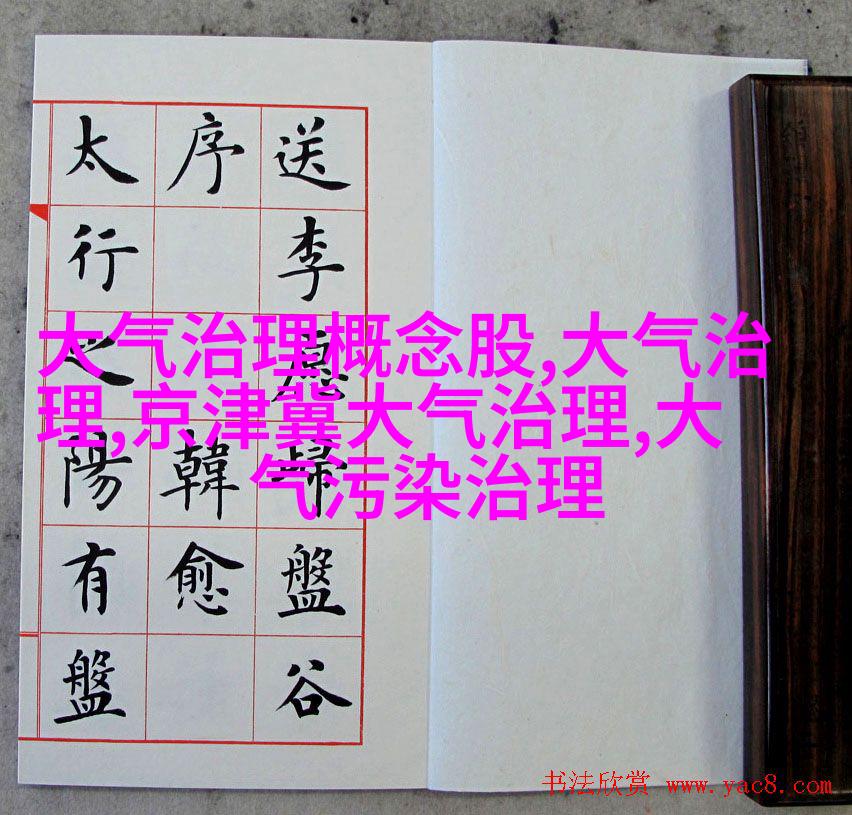 送李愿歸盤谷
序 韓愈
太行之陽有盤
大气治理概念股,大气治
理,京津冀大气治理,大
气污染治理
书法欣赏 www.yac8.com